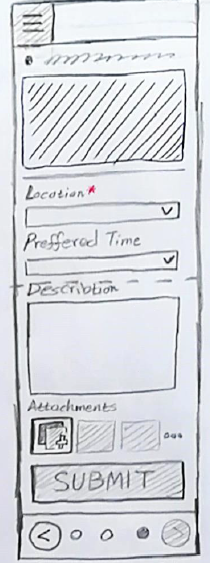 Location*
Preffered Time
Describtion
Attachments
SUBMIT